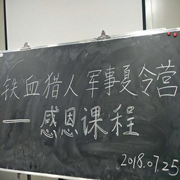 铁血猎人军事夏令营
——感恩课程
2018.07.25